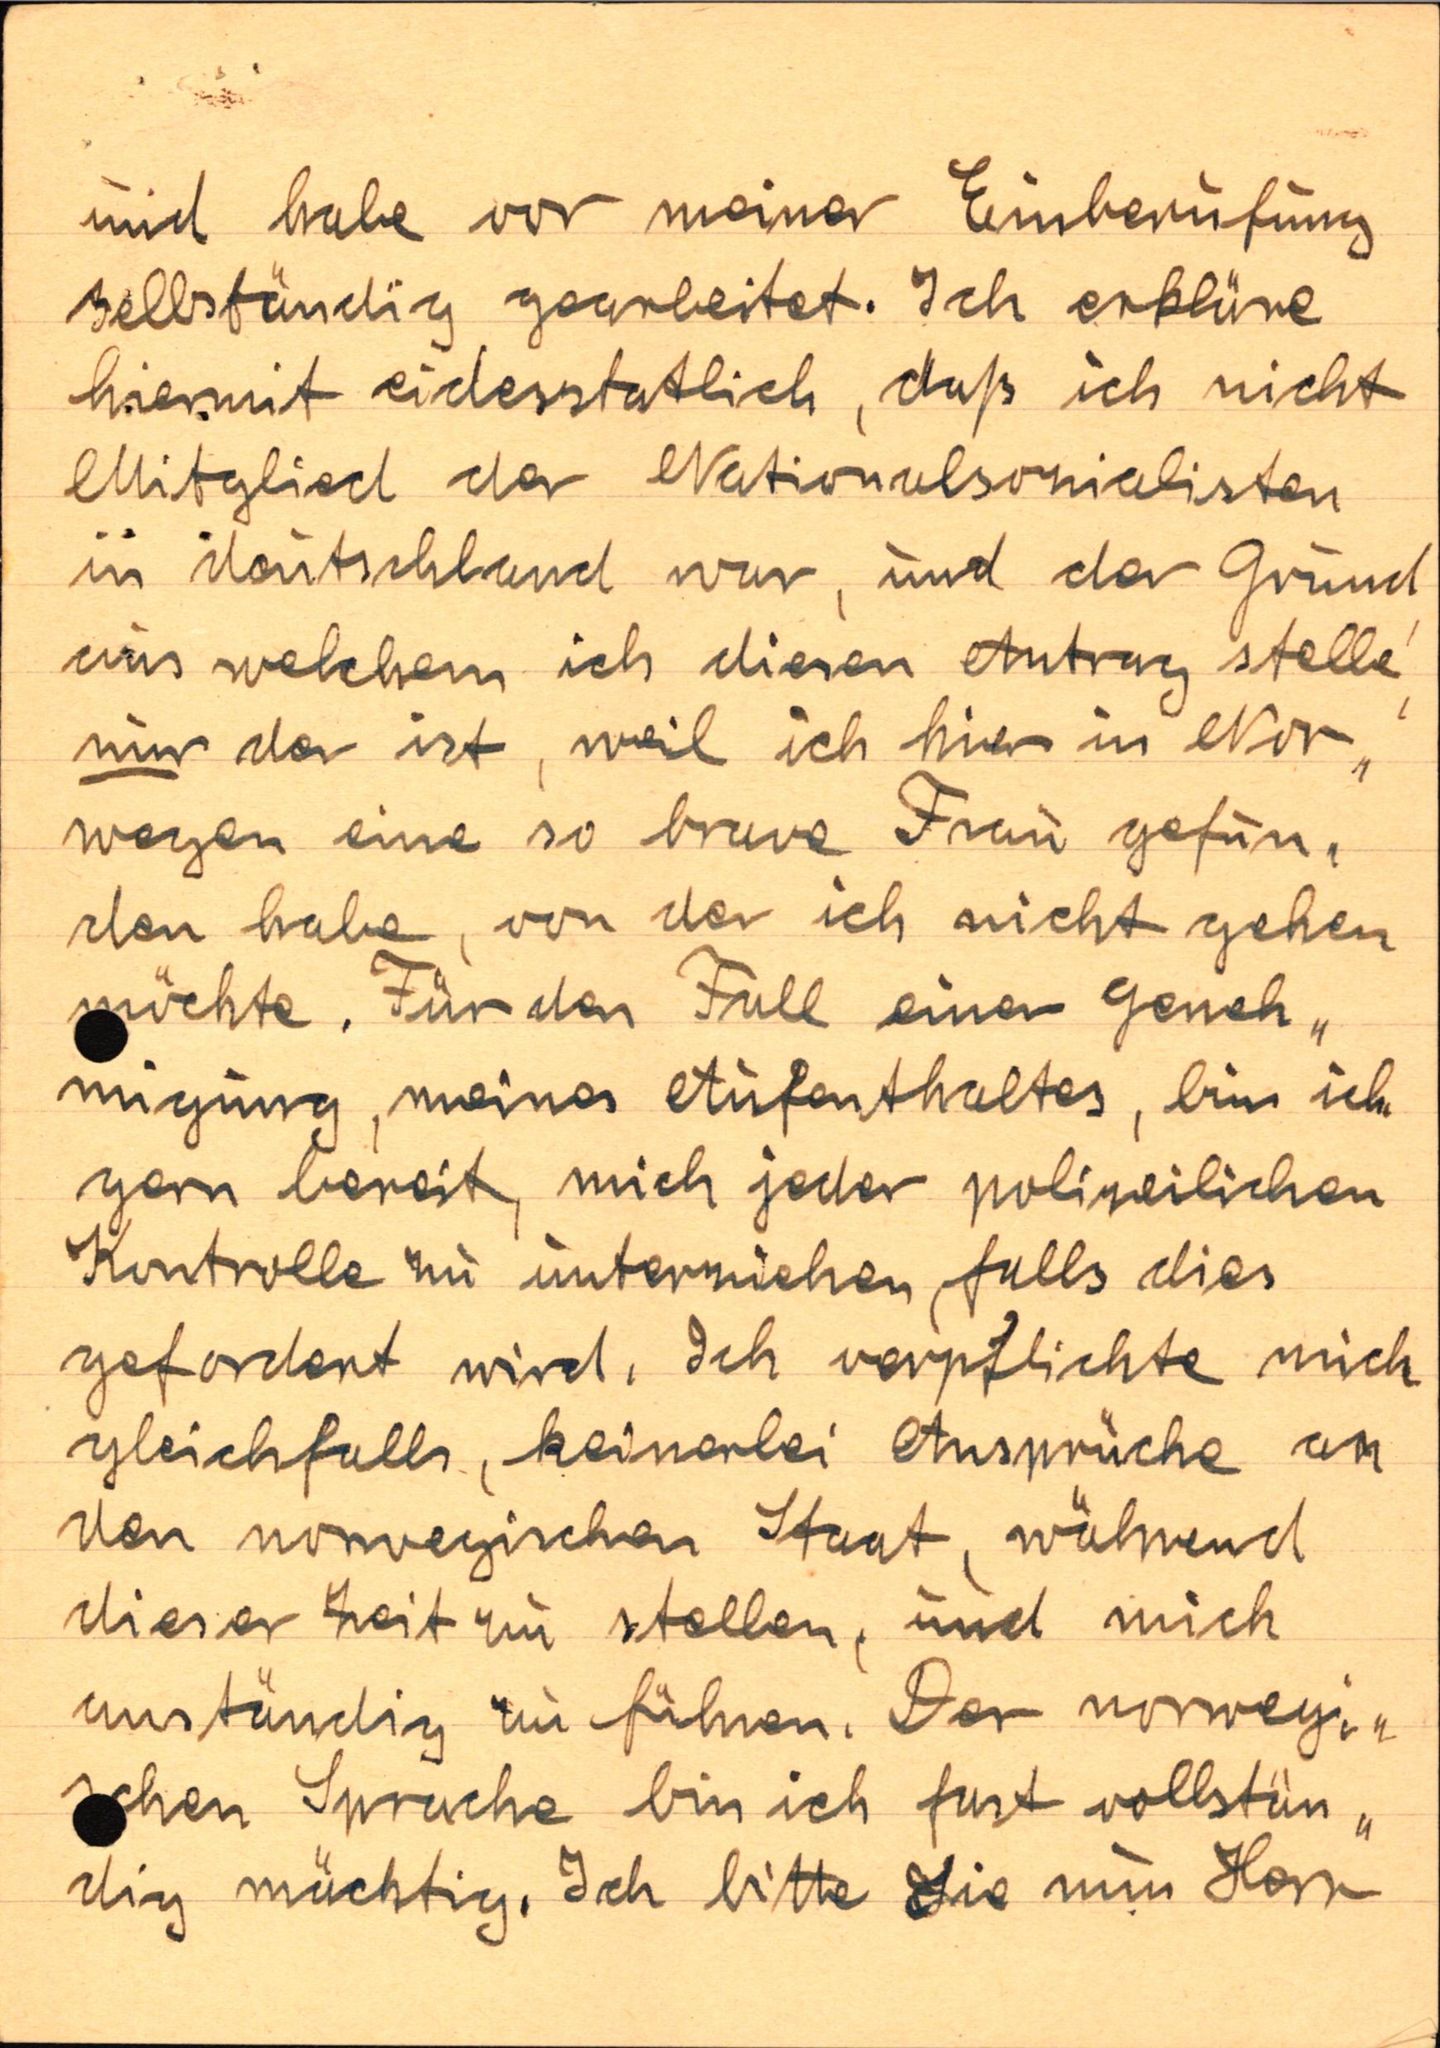 und habe vor meiner Einberufung
selbständig gearbeitet. Ich erkläre
hiermit eidesstatlich, daß ich nicht
Mitglied der Nationalsozialisten
in Deutschland war, und der Grund,
aus welchem ich diesen Antrag stelle,
nur der ist, weil ich hier in Nor„
wegen eine so brave Frau gefun„
den habe, von der ich nicht gehen
möchte. Für den Fall einer Geneh„
migung, meines Aufenthaltes, bin ich
gern bereit, mich jeder polizeilichen
Kontrolle zu unterziehen, falls dies
gefordert wird. Ich verpflichte mich
gleichfalls, keinerlei Ansprüche an
den norwegischen Staat, während
dieser Zeit zu stellen, und mich
anständig zu führen. Der norwegi„
schen Sprache bin ich fast vollstän„
dig mächtig. Ich bitte Sie nun Herr